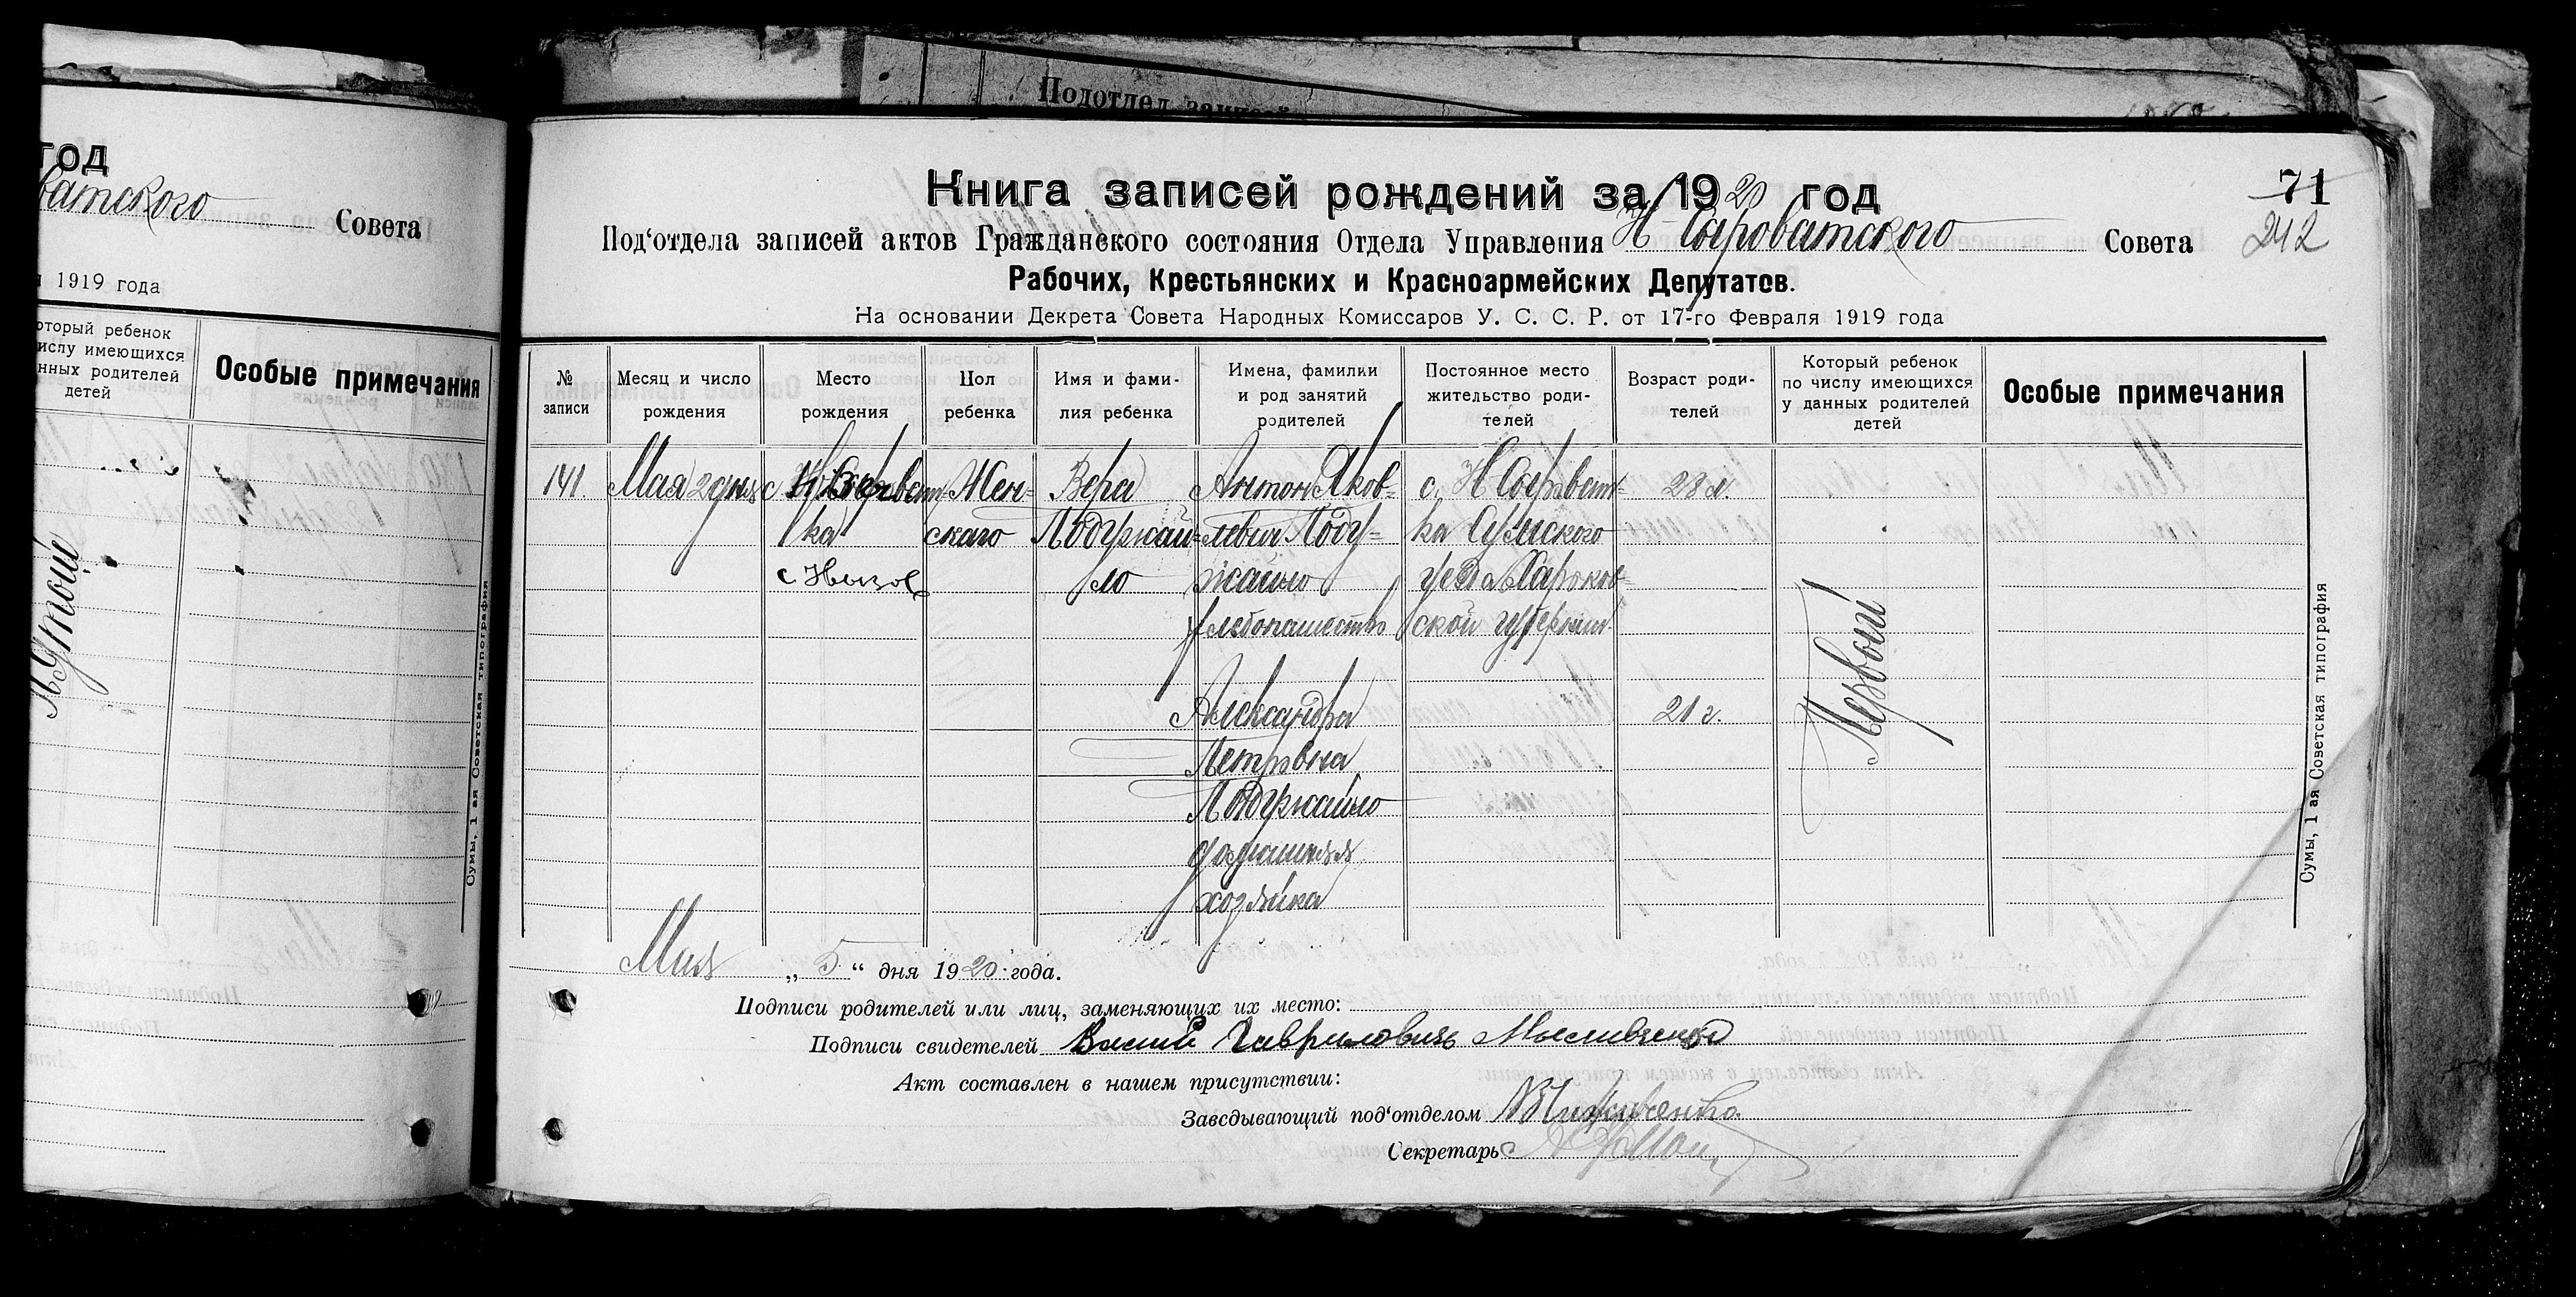 Подотдел записей
год
ватского Совета
1919 года
который ребенок
числу имеющихся
данных родителей
детей
Особые примечания
Пятый
Сумы, 1 ая Советская типография
71
242
Книга записей рождений за 1920 год
Под'отдела записей актов Гражданского состояния Отдела Управления Н Сыроватского Совета
Рабочих, Крестьянских и Красноармейских Депутатов.
На основании Декрета Совета Народных Комиссаров У. С. С. Р. от 17-го Февраля 1919 года
№ записи
Месяц и число рождения
Место рождения
Пол ребенка
Имя и фами-
лия ребенка
Имена, фамилии
и род занятий
родителей
Постоянное место
жительство роди-
телей
Возраст роди-
телей
Который ребенок
по числу имеющихся
у данных родителей
детей
Особые примечания
141.
Мая 2 дня
с Н Сыроват-
ка
с Низов
Жен-
скаго
Вера
Подужай-
ло
Антон Яков-
левич Поду-
жайло
хлебопашество
Александра
Петровна
Подужайло
домашняя
хозяйка
с. Н Сыроват-
ка Сумского
уезда Харьков-
ской губернии
28 л.
21 г.
Первый
Мая „ 5 “ дня 1920 года.
Подписи родителей или лиц, заменяющих их место:
Подписи свидетелей Василий Гавриловичъ
Акт составлен в нашем присутствии:
Заведывающий под'отделом
Секретарь
Сумы, 1 ая Советская типография